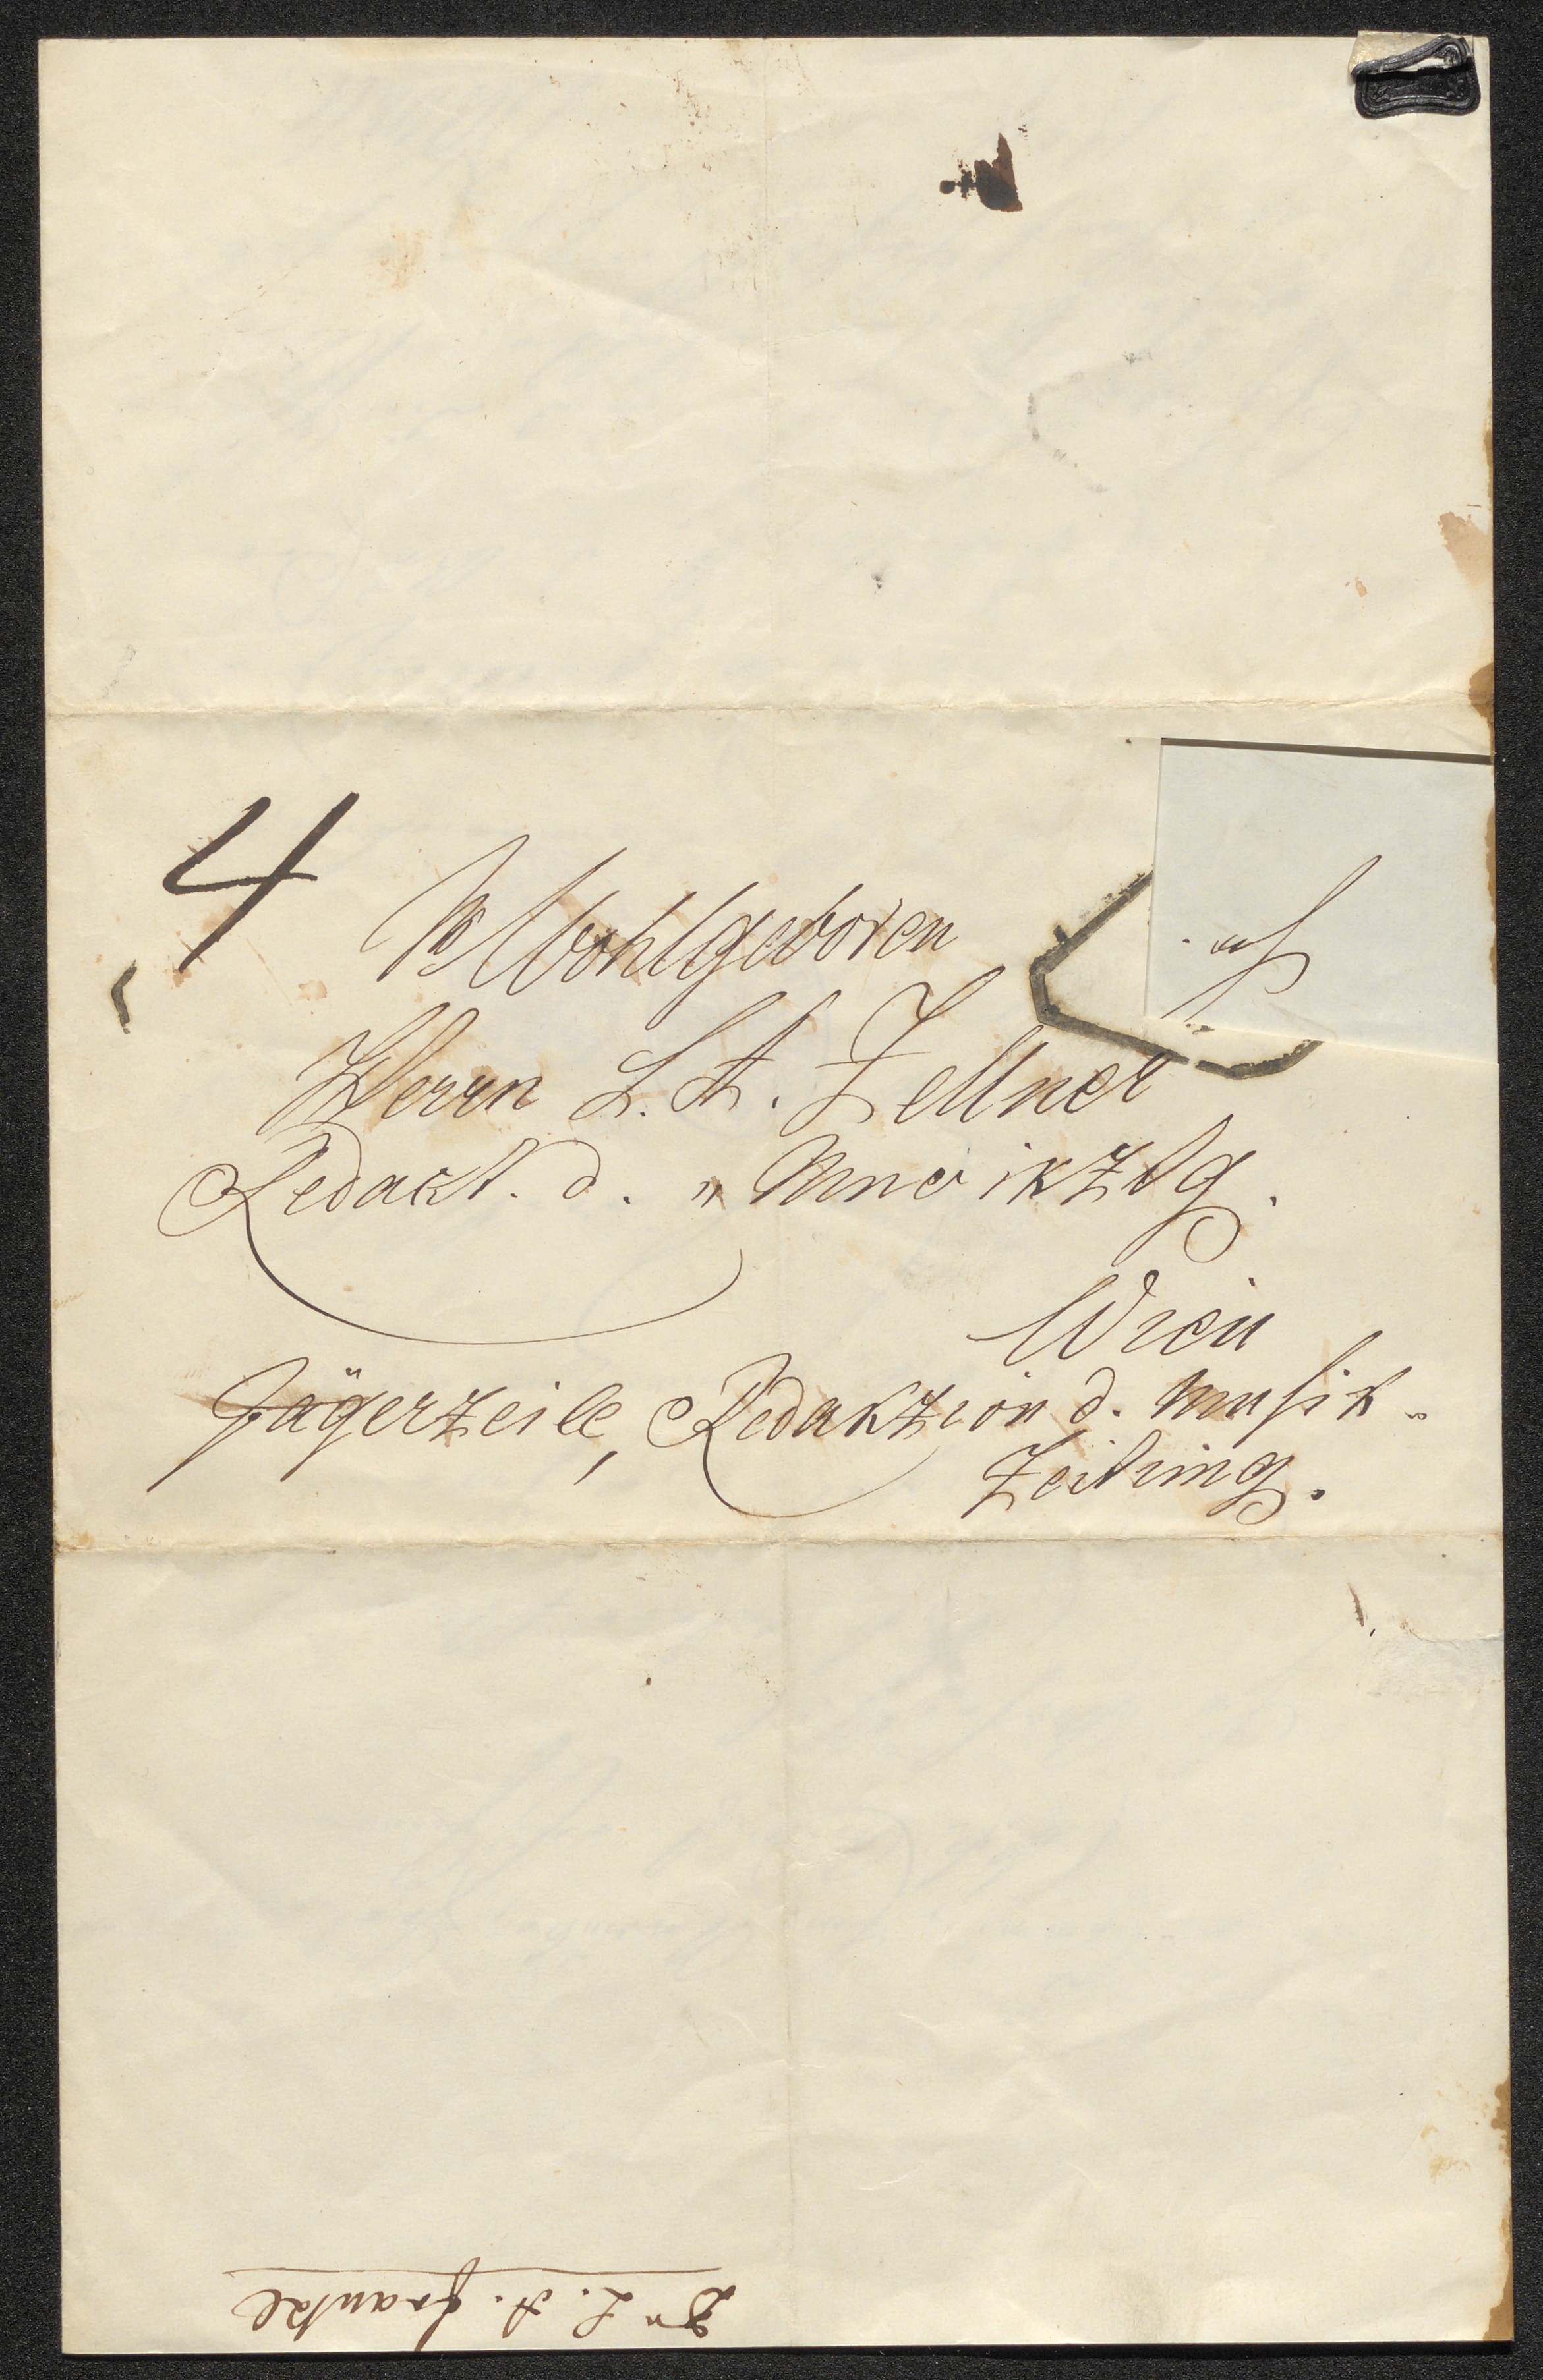 4
Wohlgeboren
Herrn L. A. Zellner
Redact. d. "Musikztg.
Wien
Jägerzeile, Redakzion d. Musik-
Zeitung.
Dr L. A. Frankl